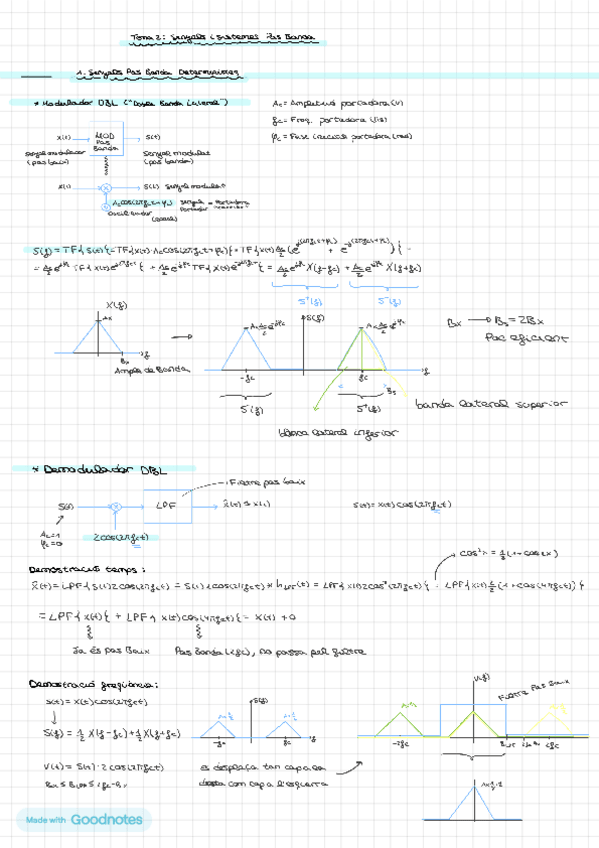 Tema 2: Senyals i Sistemes Pas Banda
1. Senyals Pas Banda Deterministes
* Modulador DBL ("Doble Banda Lateral")
Ac = Amplitud portadora (V)
fc = Freq. portadora (Hz)
φc = Fase inicial portadora (rad)
x(t) → MOD Pas Banda → S(t)
senyal modulador (pas baix)
senyal modulat (pas banda)
x(t) → ⊗ → S(t) senyal modulat
Ac cos(2πfct+φc) senyal portador
oscil·lador
S(f) = TF{S(t)} = TF{x(t)·Ac cos(2πfct+φc)} = TF{x(t) Ac/2 (e^j(2πfct+φc) + e^-j(2πfct+φc))} =
= Ac/2 e^jφc TF{x(t)e^j2πfct} + Ac/2 e^-jφc TF{x(t)e^-j2πfct} = Ac/2 e^jφc X(f-fc) + Ac/2 e^-jφc X(f+fc)
S⁺(f) S⁻(f)
X(f)
Ax
Bx f
Ample de Banda
S(f)
Ax Ac/2 e^-jφc
Ax Ac/2 e^jφc
-fc fc f
Bs
S⁻(f) S⁺(f)
Bx → Bs = 2Bx
Poc eficient
banda lateral superior
banda lateral inferior
* Demodulador DBL
Filtre pas baix
S(t) → ⊗ → LPF → x̂(t) = x(t)
S(t) = x(t) cos(2πfct)
Ac=1
φc=0
2cos(2πfct)
cos²x = 1/2 (1+cos2x)
Demostració temps:
x̂(t) = LPF{S(t) 2cos(2πfct)} = S(t) 2cos(2πfct) * hLPF(t) = LPF{x(t)2cos²(2πfct)} = LPF{x(t)2 1/2 (1+cos(4πfct))}
= LPF{x(t)} + LPF{x(t)cos(4πfct)} = x(t) + 0
Ja és pas Baix
Pas banda (2fc), no passa pel filtre
Demostració freqüència:
S(t) = x(t)cos(2πfct)
S(f) = 1/2 X(f-fc) + 1/2 X(f+fc)
S(f)
Ax 1/2 Ax 1/2
-fc fc f
V(f)
Filtre Pas Baix
Ax/2
-2fc 2fc
V(t) = S(t)·2cos(2πfct)
es desplaça tan cap a la
dreta com cap a l'esquerra
Made with Goodnotes